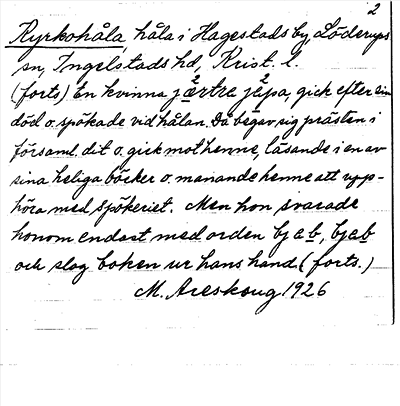 2
Ryrkohåla, håla i Hagestads by, Löderups
sn, Ingelstads hd, Krist. l.
(forts) En kvinna, gick efter sin
död o. spökade vid hålan. Då begav sig prästen i
församl. dit o. gick mot henne, läsande i en av
sina heliga böcker o. manande henne att upp-
höra med spökeriet. Men hon svarade
honom endast med orden bjäb, bjäb
och slog boken ur hans hand. (forts.)
M. Areskoug 1926